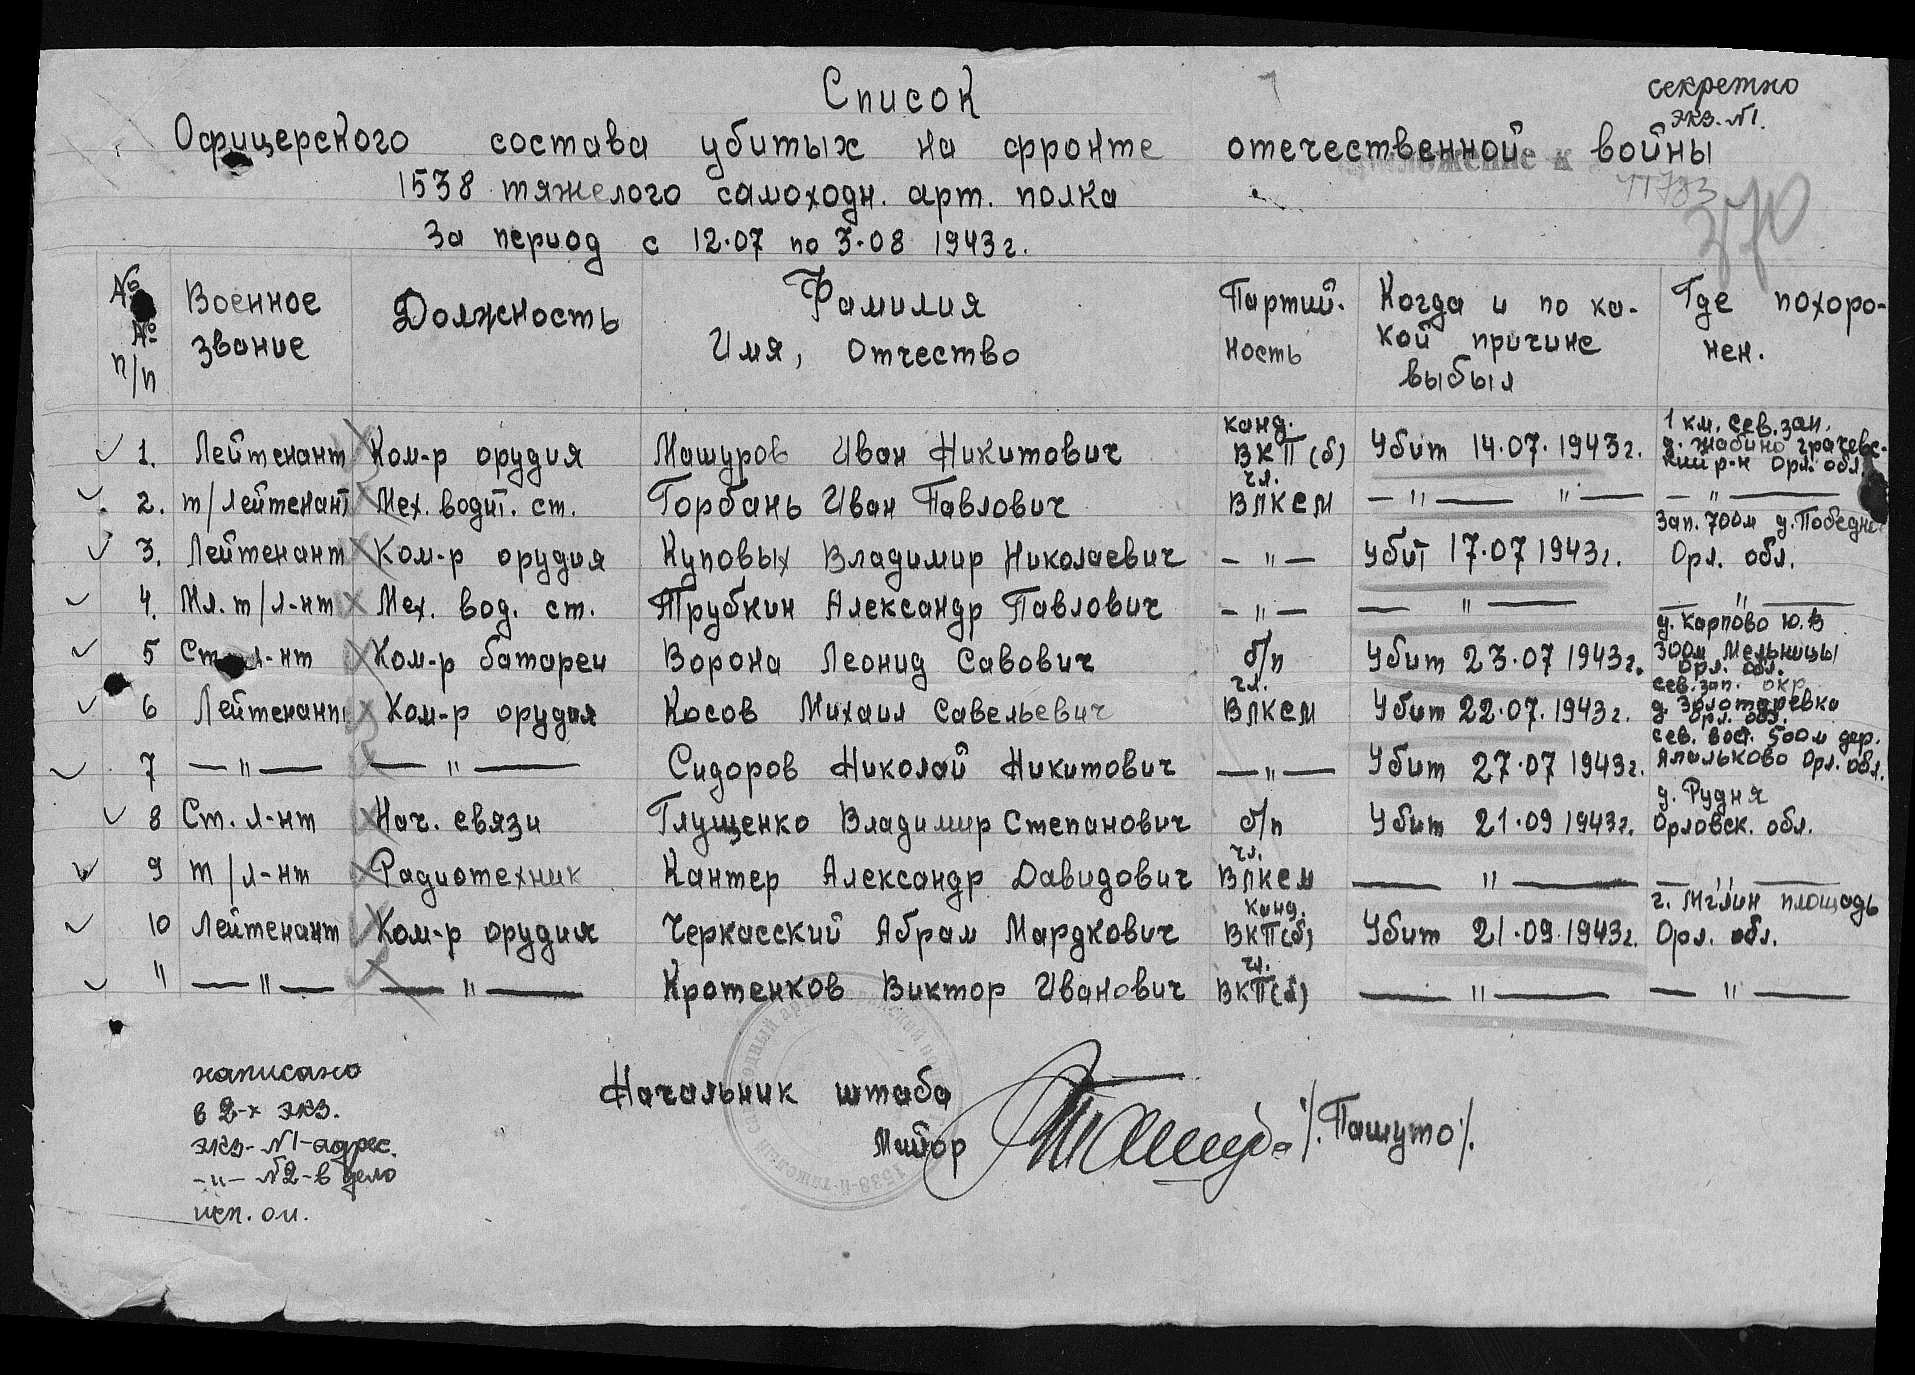 Список
секретно
экз. №1.
Офицерского состава убитых на фронте отечественной войны
1538 тяжелого самоходн. арт. полка
За период с 12.07 по 3.08 1943г.
370
№ № п/п
Военное звание
Должность
Фамилия Имя, Отчество
Партий. ность
Когда и по ка- кой причине выбыл
Где похоро- нен.
1. Лейтенант Ком-р орудия Машуров Иван Никитович канд. ВКП(б) Убит 14.07.1943г. 1 км. сев. зап. д. Жабино грачевс- кий р-н Орл. обл.
2. т/лейтенант Мех. водит. ст. Горбань Иван Павлович чл. ВЛКСМ — " — " — — " —
3. Лейтенант Ком-р орудия Куповых Владимир Николаевич — " — Убит 17.07 1943г. Зап. 700м д. Победное Орл. обл.
4. Мл. т/л-нт Мех. вод. ст. Трубкин Александр Павлович — " — — " — — " —
5 Ст. л-нт Ком-р батареи Ворона Леонид Савович б/п Убит 23.07 1943г. д. Карпово Ю.В 300м Мельницы Орл. обл.
6 Лейтенант Ком-р орудия Косов Михаил Савельевич чл. ВЛКСМ Убит 22.07.1943г. сев. зап. окр. д Золотаревка Орл. обл.
7 — " — — " — Сидоров Николай Никитович — " — Убит 27.07 1943г. сев. вост. 500м дер. Апальково Орл. обл.
8 Ст. л-нт Нач. связи Глущенко Владимир Степанович б/п Убит 21.09 1943г. д. Рудня Орловск. обл.
9 т/л-нт Радиотехник Кантер Александр Давидович чл. ВЛКСМ — " — — " —
10 Лейтенант Ком-р орудия Черкасский Абрам Мардкович канд. ВКП(б) Убит 21.09.1943г. г. Мглин площадь Орл. обл.
11 — " — — " — Кротенков Виктор Иванович чл. ВКП(б) — " — — " —
написано
в 2-х экз.
экз-№1-адрес.
-"- №2-в дело
исп. ом.
Начальник штаба
Майор /.Пашуто/.